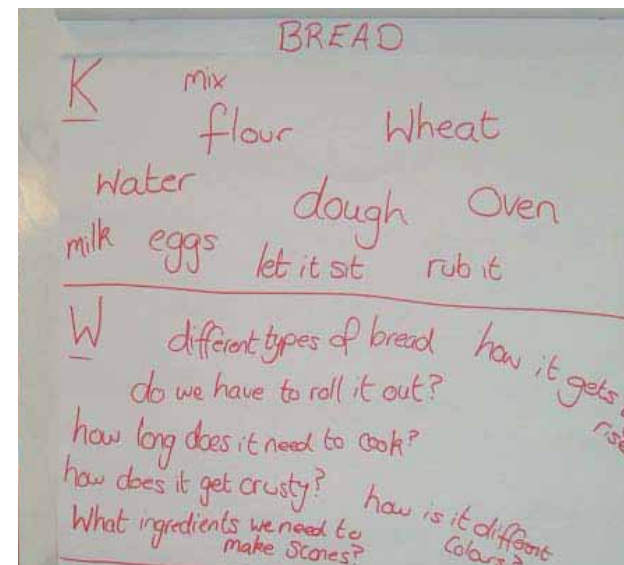 BREAD
K
mix
flour Wheat
Water dough Oven
milk eggs let it sit rub it
W
different types of bread
how it gets
rise
do we have to roll it out?
how long does it need to cook?
how does it get crusty?
how is it different
colours?
What ingredients we need to
make scones?